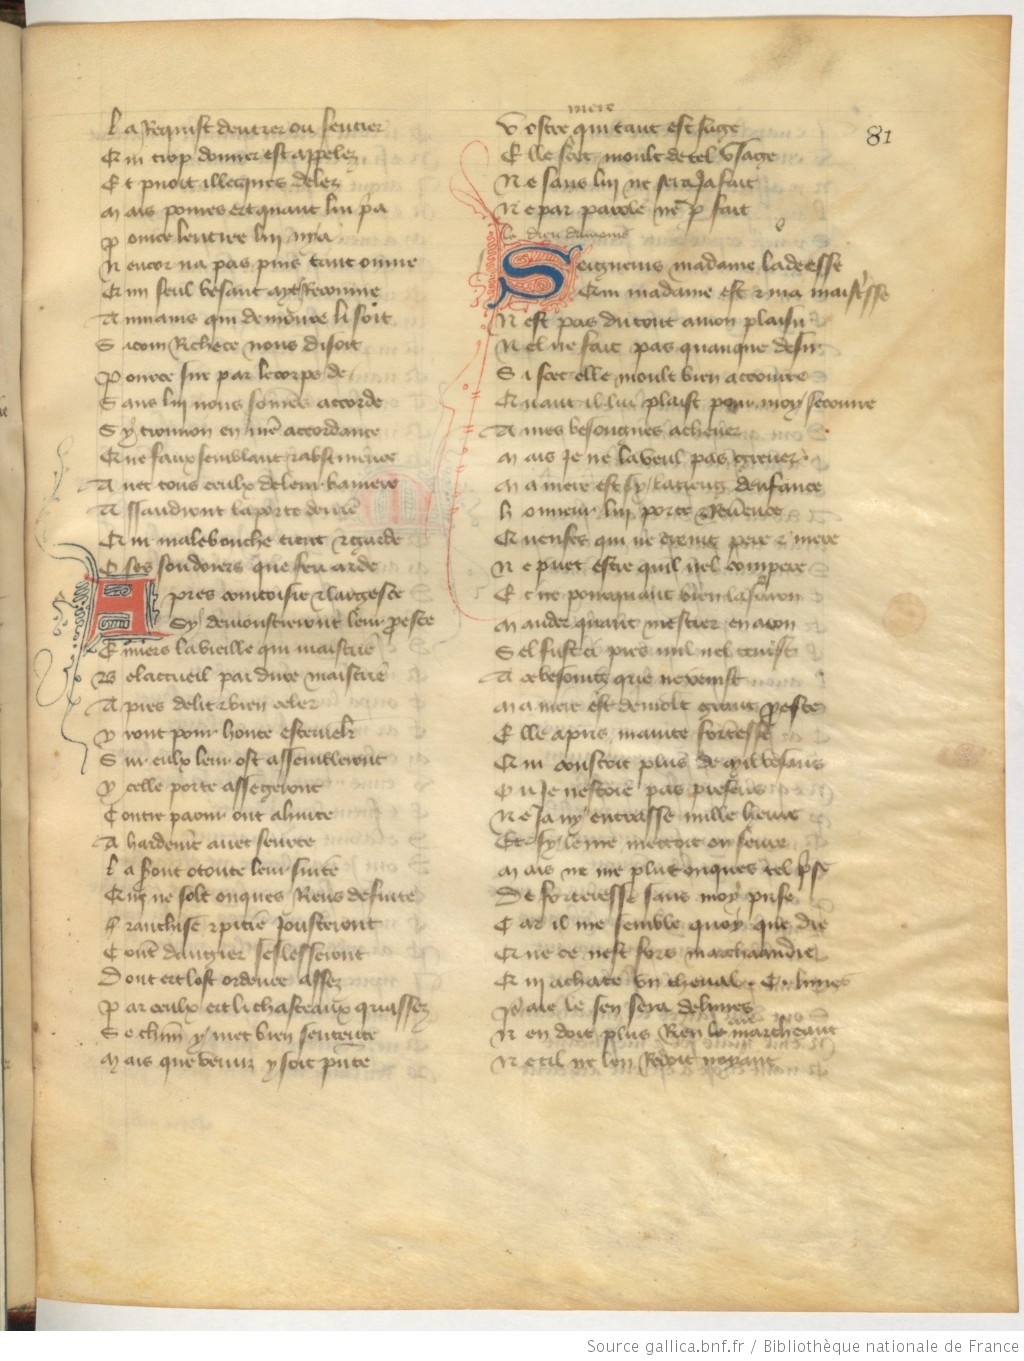 81
La Requist dentrer ou sentier
Cui trop donner est appelez
Et pooit illecques delez
Mais poures ert quant lui pa
Pource lentree lui nya
Nencor na pas puis tant onnie
Cun seul besant aye Recouure
Aumains qui demoure li soit
Si com Richece nous disoit
Pource sur par le corps de
Sans lui nous somes accorde
Sy trouuon en nre accordance
Que faux semblant & abstinence
Auec tous ceulx de leur baniere
Assaudront la porte derriere
Cui malebouche tient & garde
O ses soudoiers que feu arde
Apres courtoisie & largesce
Sy demonstreront leur proesce
Enuers la vieille qui maistrie
Belacueil par dure maistrie
Apres delit & bien celer
Yront pour honte escerueler
Sur eulx leur ost assembleront
Ycelle porte assegeront
Contre paour ont ahurte
Hardement auec seurte
La seront o toute leur suite
Qui ne sot onques Riens de fuite
Franchise & pitie Jousteront
Contre dangier & lassseront
Dont ert lost ordenee assez
Par ceulx ert li chasteaux quassez
Se chun y met bien sentente
Mais que venus y soit pnte
Vostre mere qui tant est sage
Elle scet moult de tel vsage
Ne sans lui ne sera Ja fait
Ne par parole ne p fait
Le dieu damours
Seigneurs madame la deesse
Cui madame est & ma maistresse
Nest pas du tout a mon plaisir
Nel ne fait pas quanque desir
Si scet elle moult bien accourre
Quant il lui plaist pour moy secourre
A mes besoingnes acheuer
Mais Je ne la veul pas greuer
Ma mere est sy la crieng denfance
Honneur lui porte & Reuerence
Quenfes qui ne crient pere & mere
Ne puet estre quil nel compere
Et ne pourquant bien la saron
Mander quant mestier en aron
Sel fust cy pres nul nel tenist
A ce besoing que ne venist
Ma mere est de molt grant proesce
Elle a pris mainte forteresse
Qui coustoit plus de mil besans
Ou Je nestoie pas presens
Ne Ja ny entrasse nulle heure
Et sy le me mettoit on seure
Mais ne me plut onques tel prise
De forteresse sans moy prise
Car il me semble quoy que die
Que ce nest fors marchandie
Qui achate vn cheual .C. liures
Paie le sen sera deliures
Nen doit plus Rien le marcheant
Ne cil ne len Redoit noyant